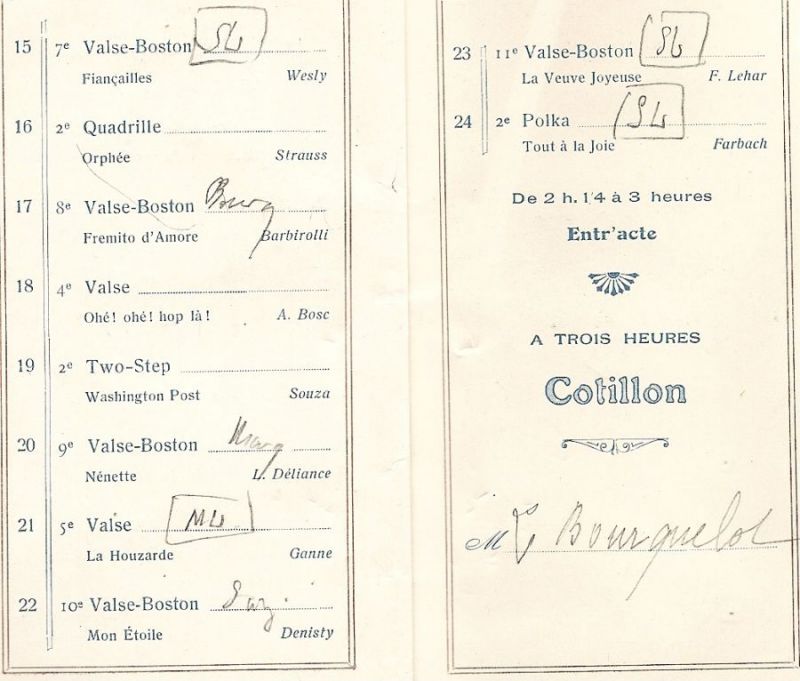 15 7e Valse-Boston SL
Fiançailles Wesly
16 2e Quadrille
Orphée Strauss
17 8e Valse-Boston
Fremito d'Amore Barbirolli
18 4e Valse
Ohé! ohé! hop là! A. Bosc
19 2e Two-Step
Washington Post Souza
20 9e Valse-Boston
Nénette L. Déliance
21 5e Valse ML
La Houzarde Ganne
22 10e Valse-Boston
Mon Étoile Denisty
23 11e Valse-Boston SL
La Veuve Joyeuse F. Lehar
24 2e Polka SL
Tout à la Joie Farbach
De 2 h. 14 à 3 heures
Entr'acte
A TROIS HEURES
Cotillon
M Bourquelot